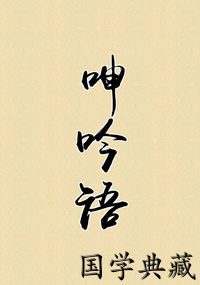 呻吟语
国学典藏